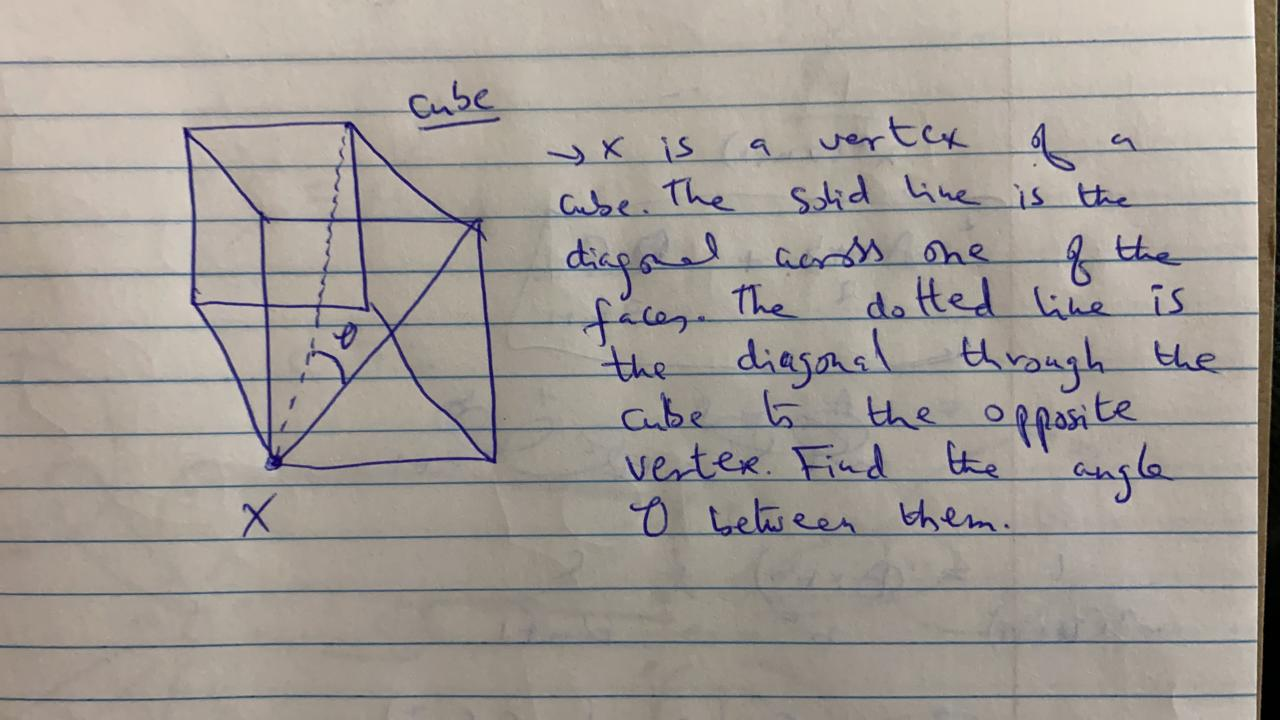 Cube
→ X is a vertex of a
cube. The solid line is the
diagonal across one of the
faces. The dotted line is
the diagonal through the
cube to the opposite
vertex. Find the angle
θ between them.
θ
X